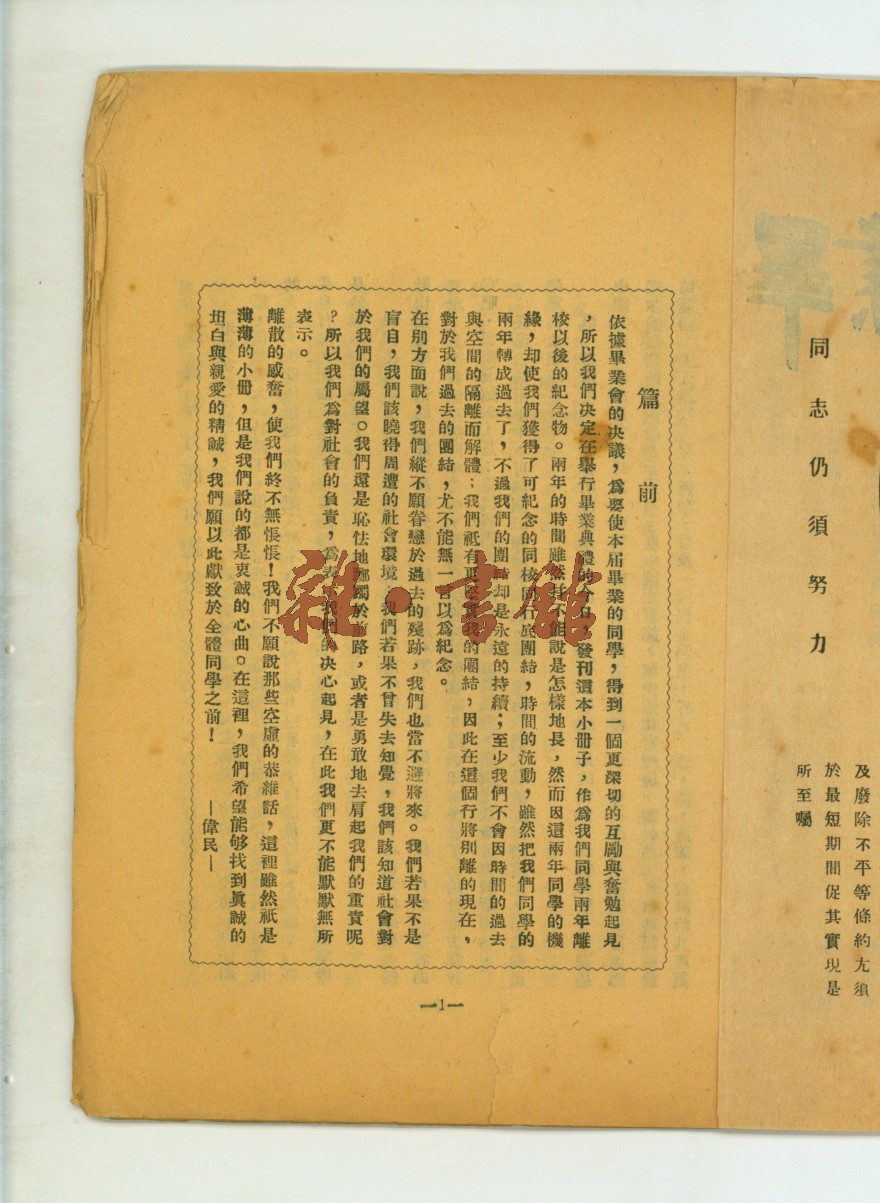 同志仍須努力
及廢除不平等條約尤須
於最短期間促其實現是
所至囑
篇前
依據畢業會的決議，爲要使本屆畢業的同學，得到一個更深切的互勵與奮勉起見
，所以我們決定在舉行畢業典禮的今日，發刊這本小冊子，作爲我們同學兩年離
校以後的紀念物。兩年的時間雖然并不能說是怎樣地長，然而因這兩年同學的機
緣，却使我們獲得了可紀念的同校同行底團結，時間的流動，雖然把我們同學的
兩年轉成過去了，不過我們的團結却是永遠的持續；至少我們不會因時間的過去
與空間的隔離而解體；我們祗有更堅實我的團結，因此在這個行將別離的現在，
對於我們過去的團結，尤不能無一以爲紀念。
在別方面說，我們縱不願眷戀於過去的殘跡，我們也當不避將來。我們若果不是
盲自，我們該曉得周遭的社會環境，我們若果不曾失去知覺，我們該知道社會對
於我們的屬望。我們還是恥怯地躑躅於前路，或者是勇敢地去肩起我們的重責呢
？所以我們爲對社會的負責，爲表我們的決心起見，在此我們更不能默默無所
表示。
離散的感奮，使我們終不無悵悵！我們不願說那些空虛的恭維話，這裡雖然祇是
薄薄的小冊，但是我們說的都是衷誠的心曲。在這裡，我們希望能够找到眞誠的
坦白與親愛的精誠，我們願以此獻致於全體同學之前！　—偉民—
—1—
雜·書館